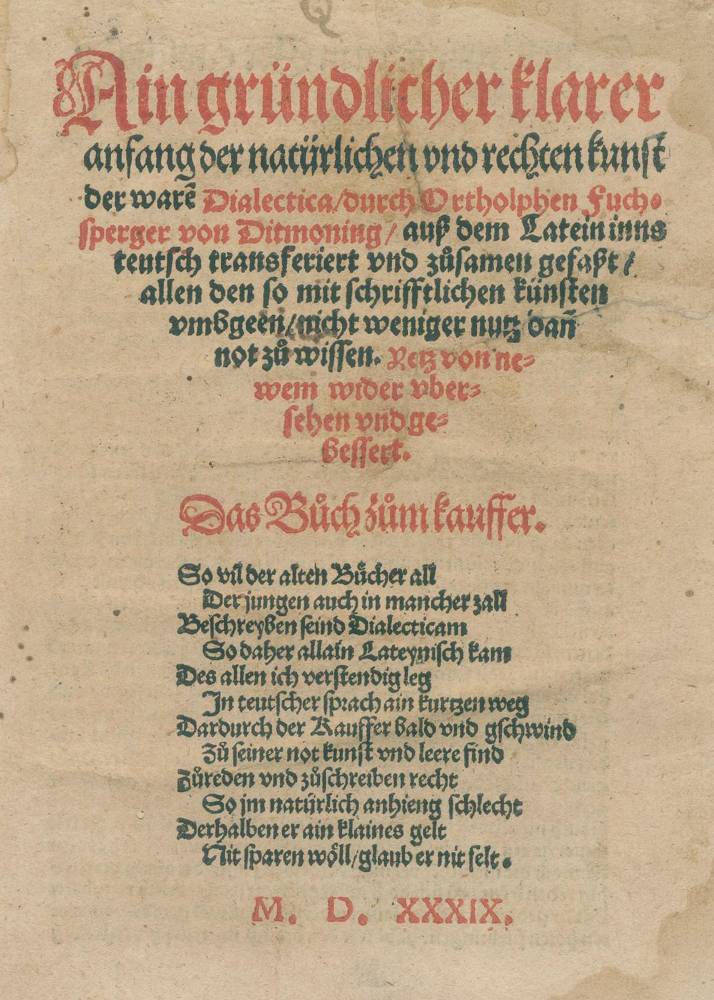 Ain gründlicher klarer
anfang der natürlichen vnd rechten kunst
der warẽ Dialectica/durch Ortholphen Fuch⸗
sperger von Ditmoning/ auß dem Latein inns
teutsch transferiert vnd zůsamen gefaßt/
allen den so mit schrifftlichen künsten
vmbgeen/nicht weniger nutz dañ
not zů wissen. Yetz von ne⸗
wem wider vber⸗
sehen vnd ge⸗
bessert.
Das Bůch zům kauffer.
So vil der alten Bücher all
Der jungen auch in mancher zall
Beschreyben seind Dialecticam
So daher allain Lateynisch kam
Des allen ich verstendig leg
In teutscher sprach ain kurtzen weg
Dardurch der Kauffer bald vnd gschwind
Zů seiner not kunst vnd leere find
Zůreden vnd zůschreiben recht
So jm natürlich anhieng schlecht
Derhalben er ain klaines gelt
Nit sparen wöll/glaub er nit felt.
M. D. XXXIX.